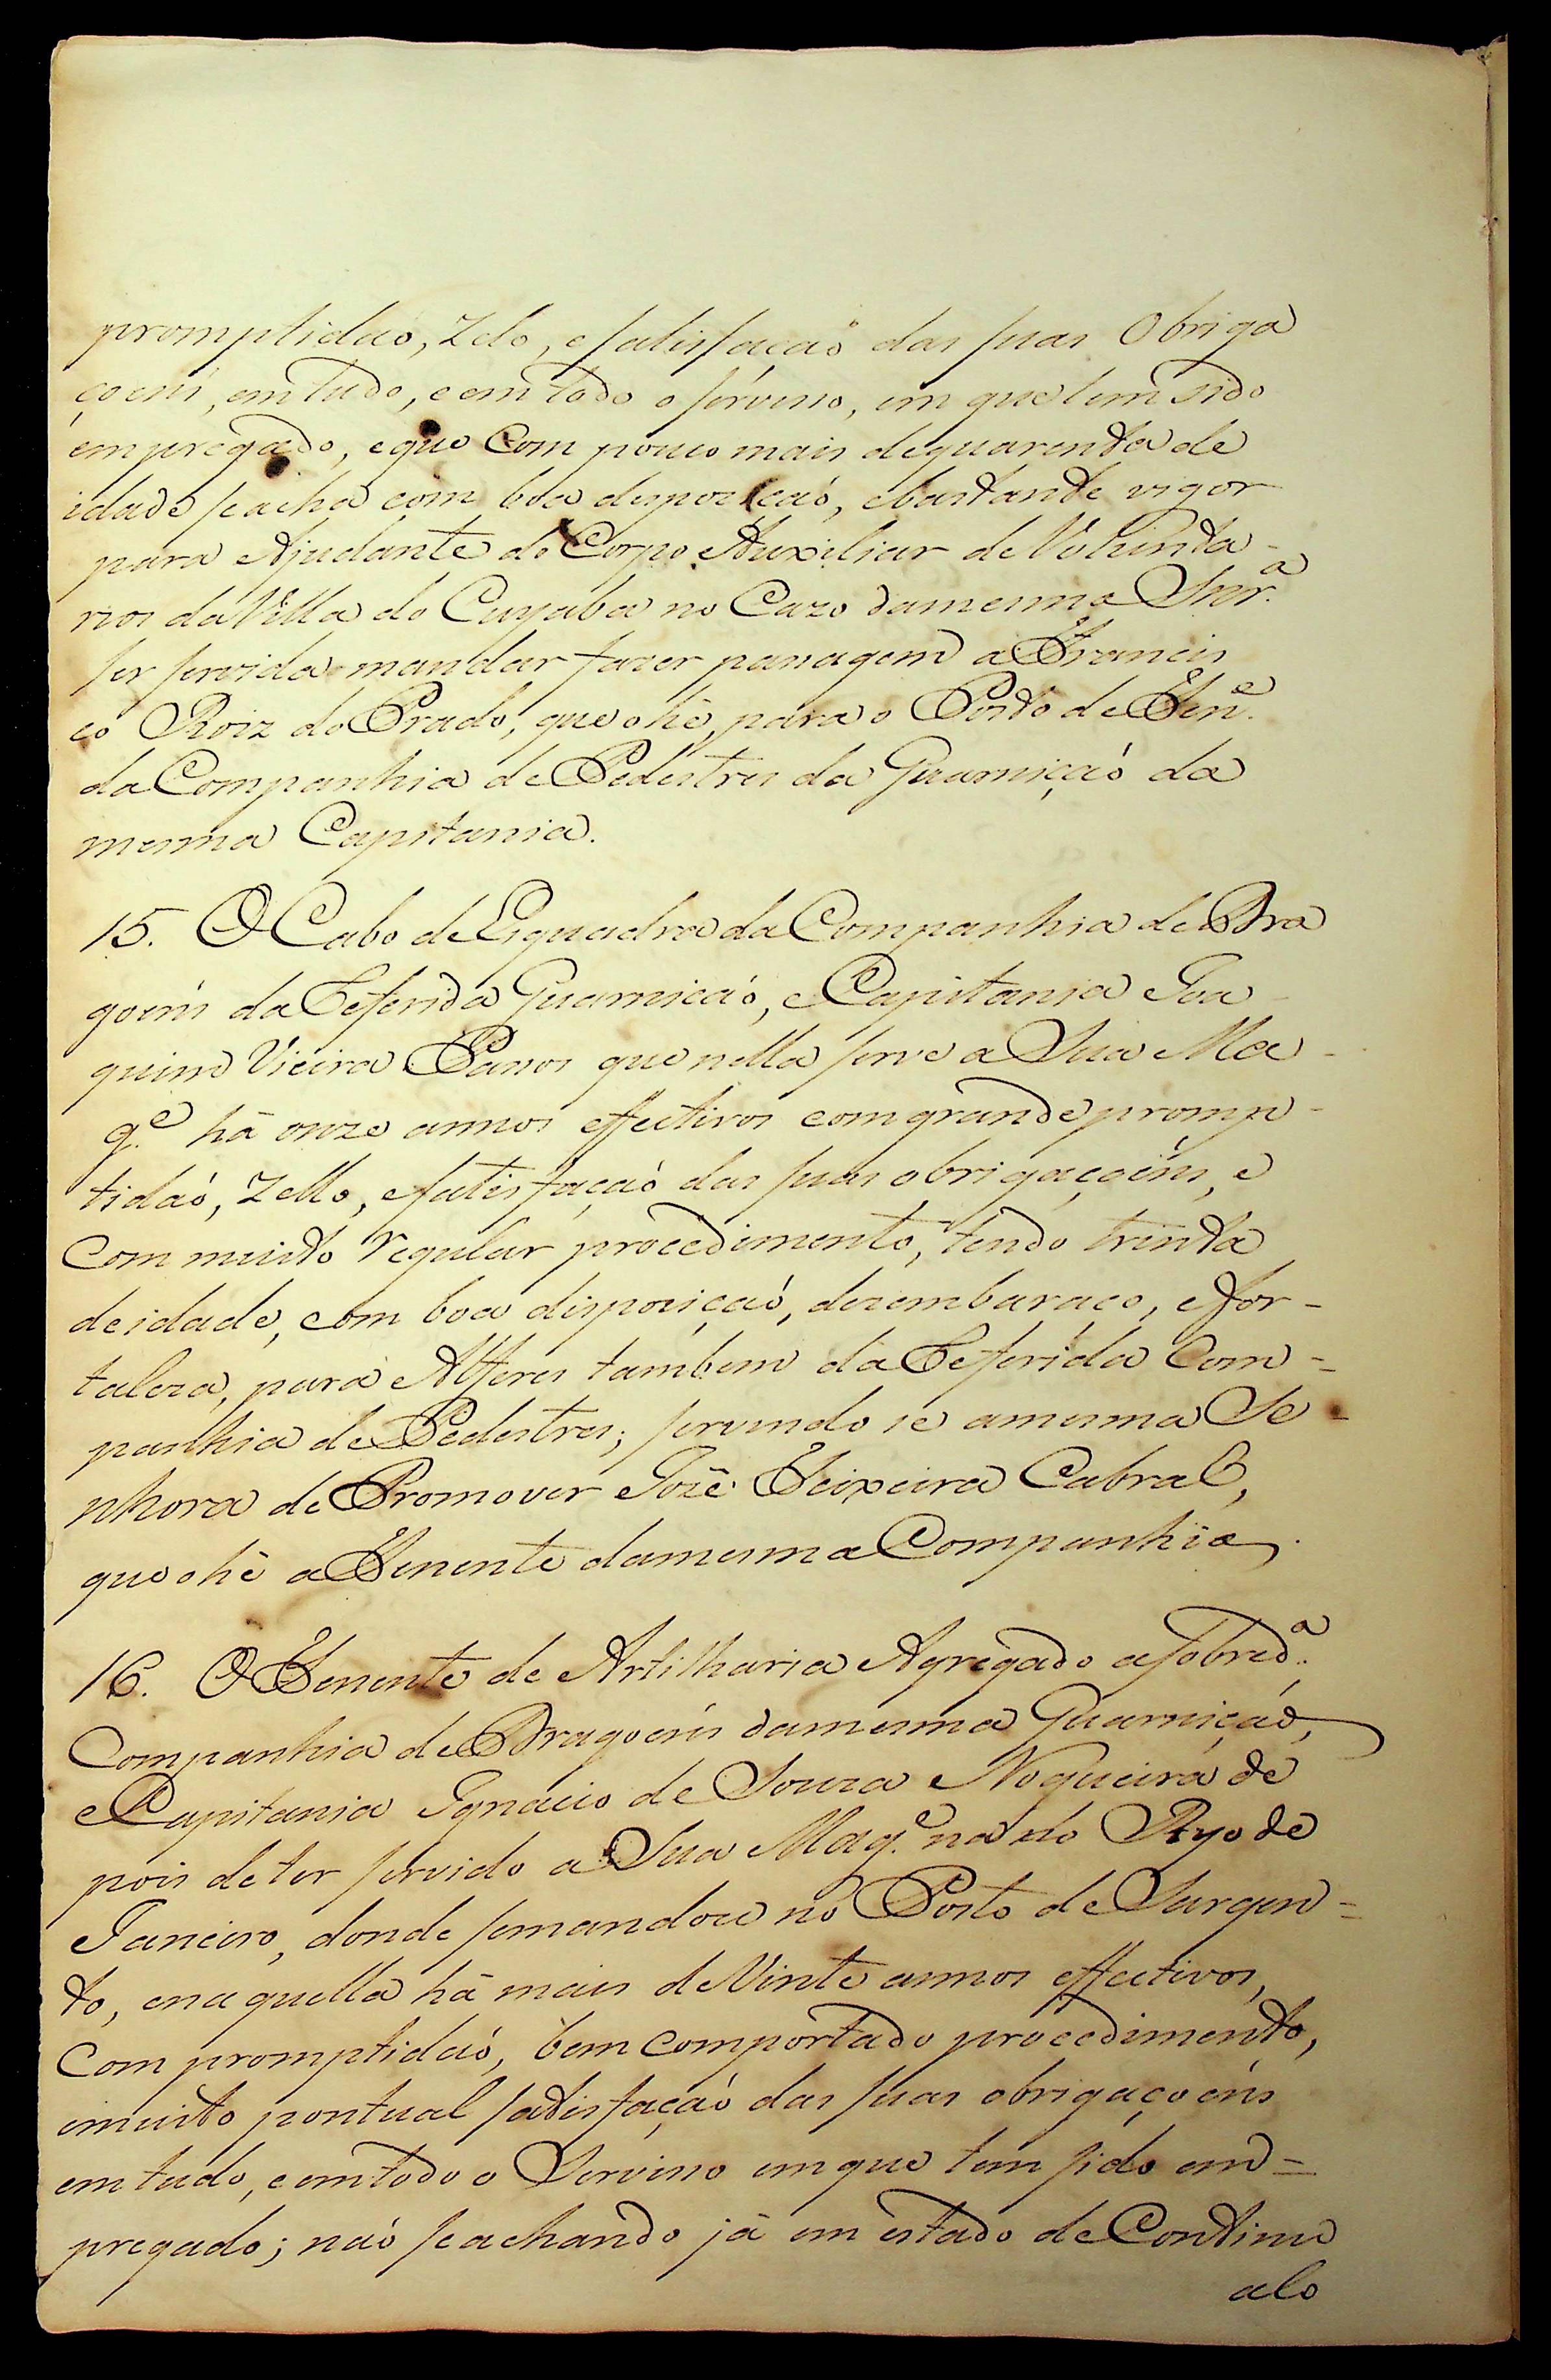 promptidaõ, Zelo, e satisfaçaõ das suas Obriga
çoens, em tudo, e em todo o serviso, em que tem sido
empregado, e que Com pouco mais de quarenta de
idade se acha com boa dispozicaó, e bastante vigor
para Ajudante do Corpo Auxiliar de Volunta-
rios da Villa do Cuyaba no Cazo da mesma Snr.ª
ser servida mandar fazer passagem a Francis
co Roiz do Prado, que o hé, para o Posto de Ten.e
da Companhia de Pedestres da Guarniçaó da
mesma Capitania.
15. O Cabo de Esquadra da Companhia de Dra
goens da Referida Guarnicaó, e Capitania Joa-
quim Vieira Passos que nella serve a Sua Ma-
g.e hã onze annos effectivos com grande promp-
tidaó, Zello, e satisfaçaó das suas obrigaçoéns, e
Com muito regular procedimento, tendo trinta
de idade, com boa dispoziçaó, dezembaraço, e for-
taleza, para Alferes tambem da Referida Com=
panhia de Pedestres; servindo se a mesma Se-
nhora de Promover Jozé Teixeira Cabral,
que o hé a Tenente da mesma Companhia.
16. O Tenente de Artilharia Agregado a sobred.ª
Companhia de Dragoens da mesma Guarniçaó,
e Capitania Ignacio de Souza Nogueira de
pois de ter servido a Sua Mag.e na do Ryo de
Janeiro, donde se mandou no Posto de Sargen=
to, e naquella hã mais de Vinte annos effectivos,
Com promptidaó, bem comportado procedimento,
e muito pontual satisfaçaó das suas obrigaçoéns
em tudo, e em todo o Serviso em que tem sido em=
pregado; naó se achando jà em estado de Continu
alo